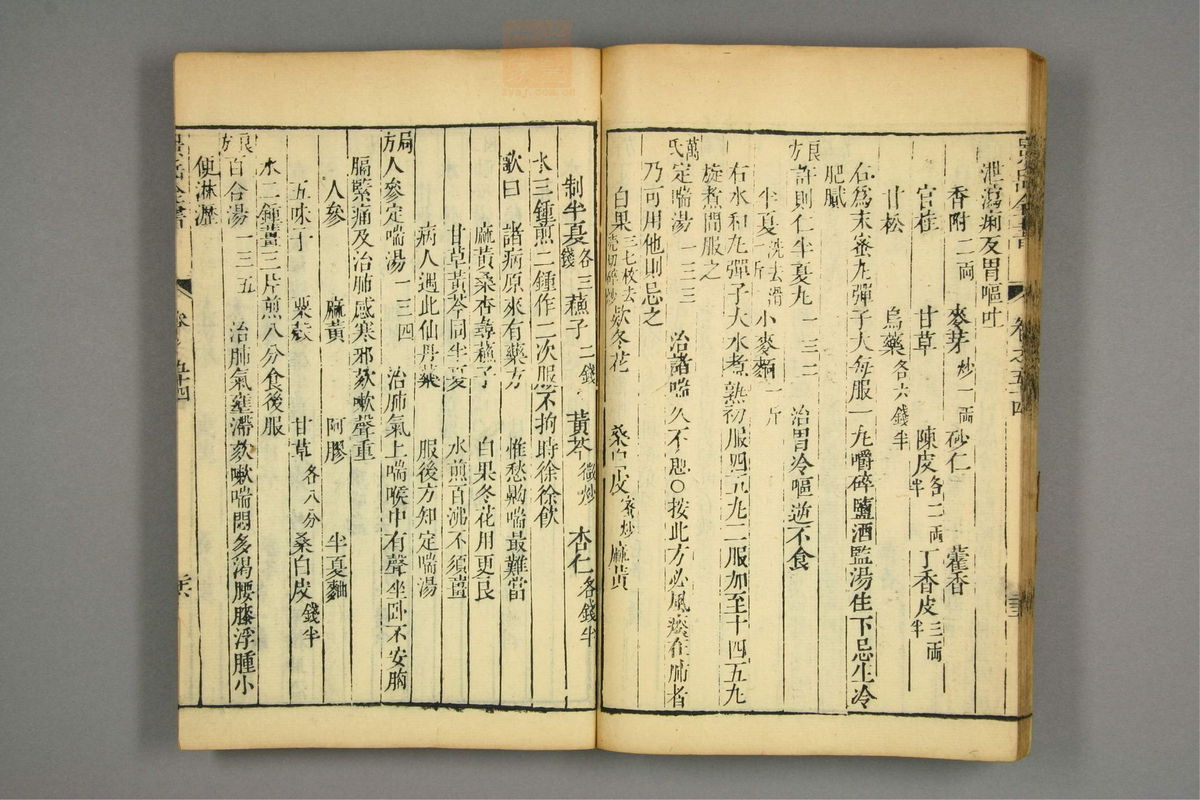 泄瀉痢及胃嘔吐
香附二兩 麥芽炒一兩 砂仁 藿香
官桂 甘草 陳皮各二兩半 丁香皮三兩半
甘松 烏藥各六錢半
右爲末蜜丸彈子大每服一丸嚼碎鹽酒鹽湯任下忌生冷
肥膩
良方許則仁半夏丸一三二 治胃冷嘔逆不食
半夏一斤洗去滑 小麥麵一斤
右水和丸彈子大水煮熟初服四五丸二服加至十四五丸
旋煮間服之
萬氏定喘湯一三三 治諸喘久不愈○按此方必風痰在肺者
乃可用他則忌之
白果三七枚去殼切碎炒 欵冬花 桑白皮蜜炒 麻黄
制半夏各三錢 蘇子二錢 黄芩微炒 杏仁各錢半
水三鍾煎二鍾作二次服不拘時徐徐飲
歌曰 諸病原來有藥方 惟愁齁喘最難當
麻黄桑杏尋蘇子 白果冬花用更良
甘草黄芩同半夏 水煎百沸不須薑
病人遇此仙丹藥 服後方知定喘湯
局方人參定喘湯一三四 治肺氣上喘喉中有聲坐卧不安胸
膈緊痛及治肺感寒邪欬嗽聲重
人參 麻黄 阿膠 半夏麯
五味子 粟殼 甘草各八分 桑白皮錢半
水二鍾薑三片煎八分食後服
良方百合湯一三五 治肺氣壅滯欬嗽喘悶多渴腰膝浮腫小
便淋瀝